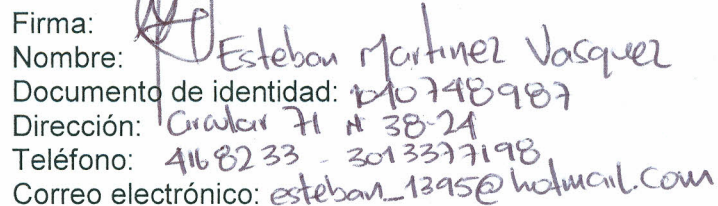 Firma:
Nombre: Esteban Martinez Vasquez
Documento de identidad: 1040748987
Dirección: Circular 71 N 38-24
Teléfono: 4168233 - 3013377198
Correo electrónico: esteban_1395@hotmail.com